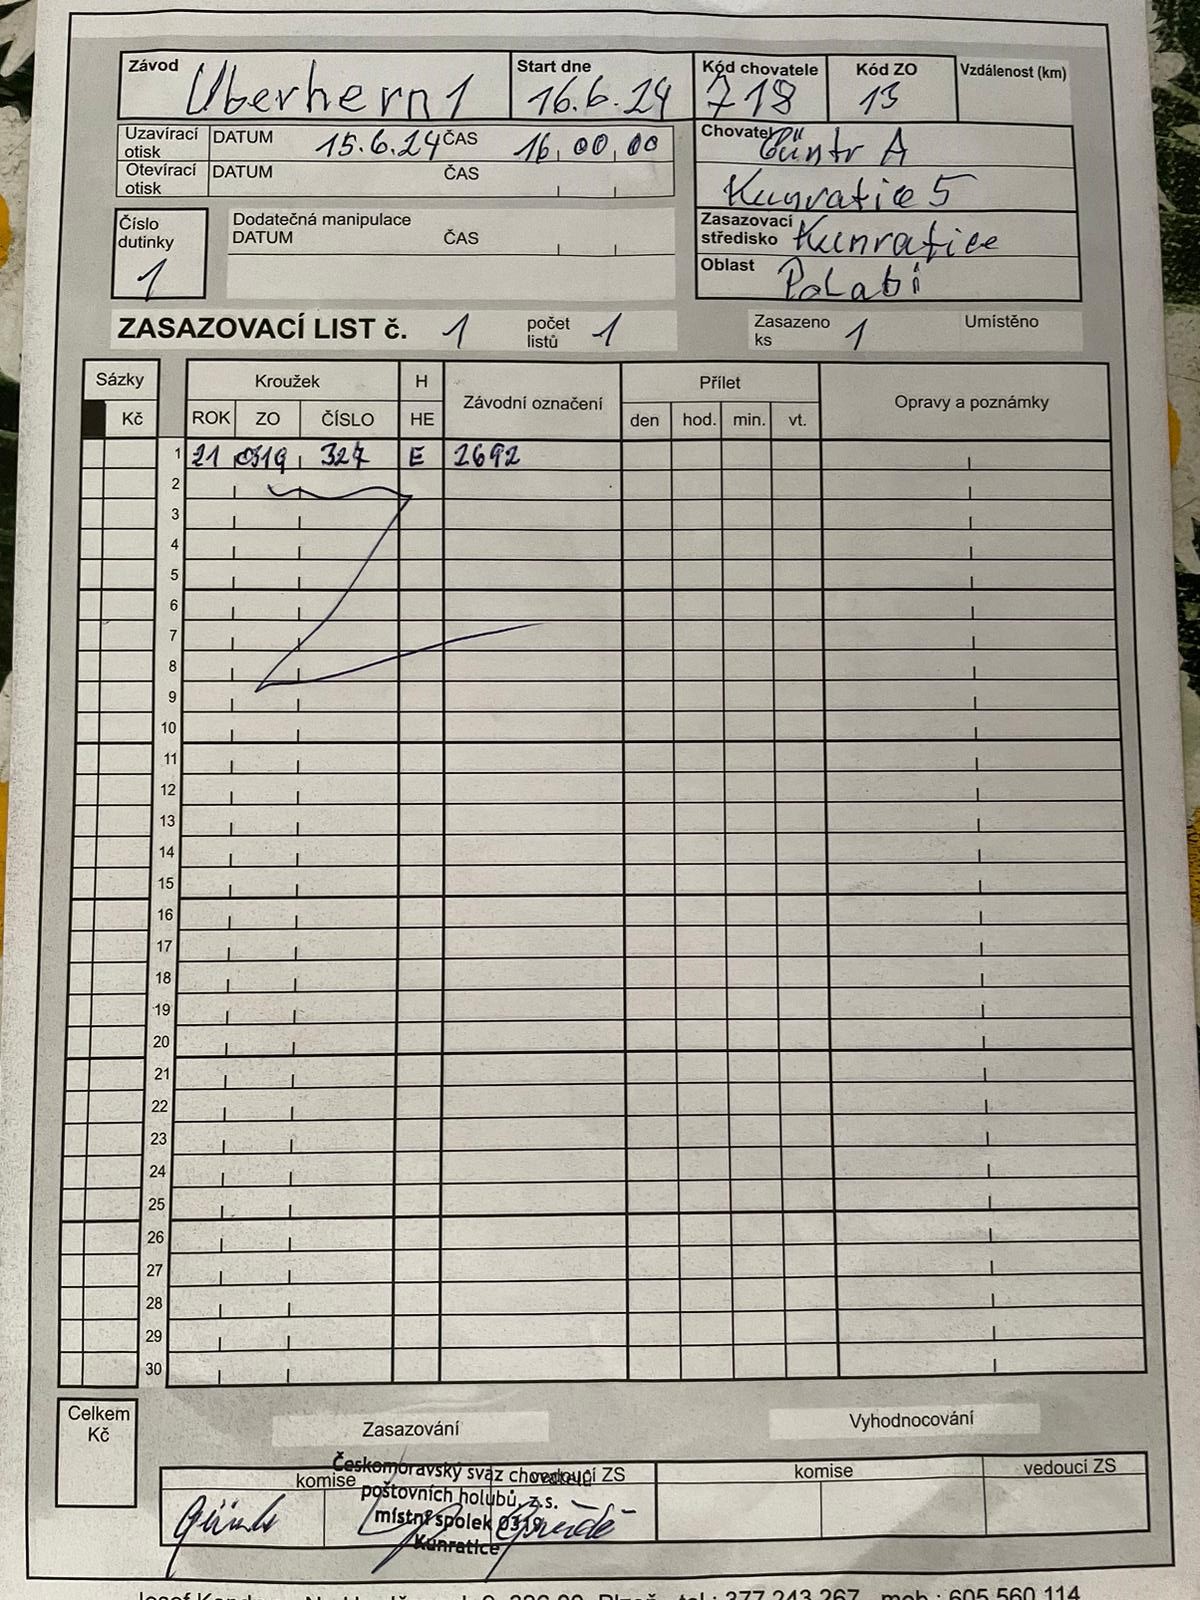 Závod Überhern 1 Start dne 16.6.24 Kód chovatele 718 Kód ZO 13 Vzdálenost (km)
Uzavírací otisk DATUM 15.6.24 ČAS 16 00 00
Otevírací otisk DATUM ČAS
Chovatel Güntr A
Kunratice 5
Číslo dutinky 1
Dodatečná manipulace
DATUM ČAS
Zasazovací středisko Kunratice
Oblast Polabí
ZASAZOVACÍ LIST č. 1 počet listů 1 Zasazeno ks 1 Umístěno
Sázky Kroužek H Závodní označení Přílet Opravy a poznámky
Kč ROK ZO ČÍSLO HE den hod. min. vt.
1 21 0319 327 E 2692
2
3
4
5
6
7
8
9
10
11
12
13
14
15
16
17
18
19
20
21
22
23
24
25
26
27
28
29
30
Celkem Kč
Zasazování Vyhodnocování
komise vedoucí ZS komise vedoucí ZS
Českomoravský svaz chovatelů
poštovních holubů, z.s.
místní spolek 0319
Kunratice
377 243 267 mob.: 605 560 114